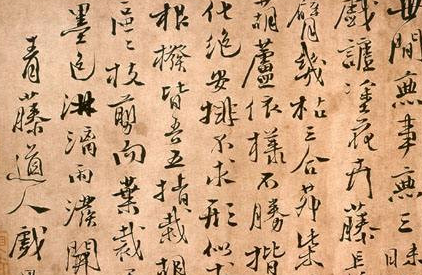 世間無事無三昧
戲謔塗花卉藤長
臂幾枯三合茅柴
葫蘆依樣不勝揩
化絕安排不求形似
根撥皆吾五指栽胡
區々枝剪而葉裁
墨色淋漓雨潑開
青藤道人戲